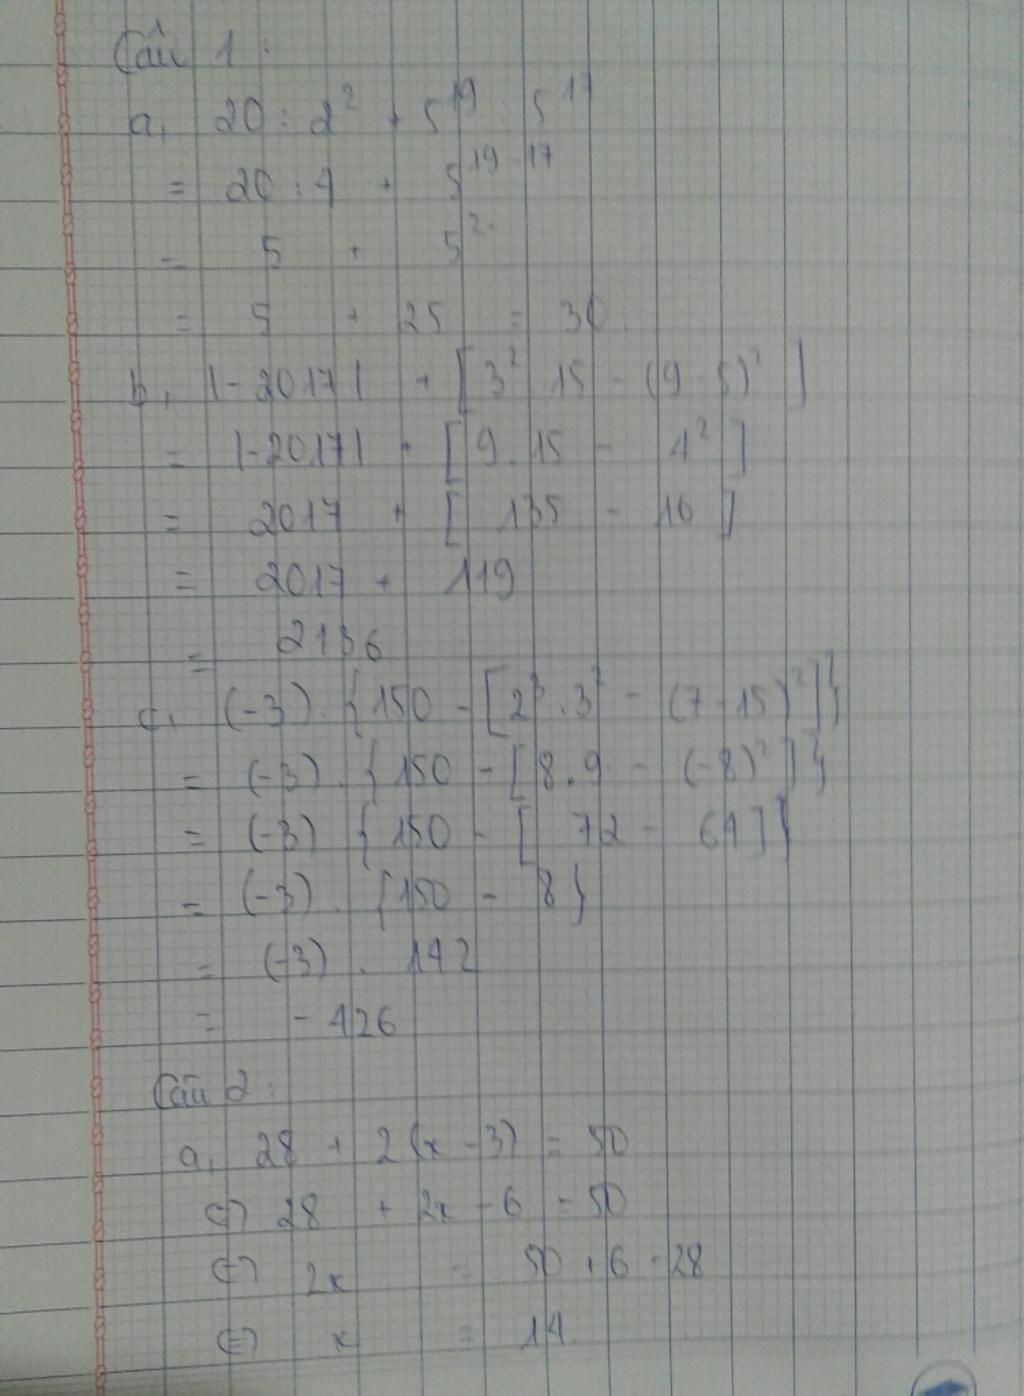 Câu 1:
a, 20 : 2² + 5¹⁹ : 5¹⁷
= 20 : 4 + 5¹⁹⁻¹⁷
= 5 + 5²
= 5 + 25 = 30
b, |-2017| + [3² . 15 - (9 - 5)²]
= |-2017| + [9 . 15 - 4²]
= 2017 + [135 - 16]
= 2017 + 119
= 2136
c, (-3) . {150 - [2³ . 3² - (7 - 15)²]}
= (-3) . {150 - [8 . 9 - (-8)²]}
= (-3) {150 - [72 - 64]}
= (-3) . {150 - 8}
= (-3) . 142
= - 426
Câu 2:
a, 28 + 2(x - 3) = 50
⇔ 28 + 2x - 6 = 50
⇔ 2x = 50 + 6 - 28
⇔ x = 14